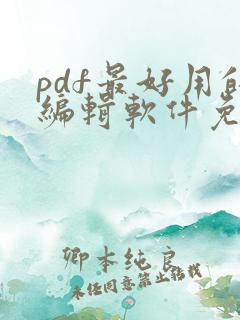 pdf最好用的
编辑软件免
卿本纯良
未经同意禁止转载